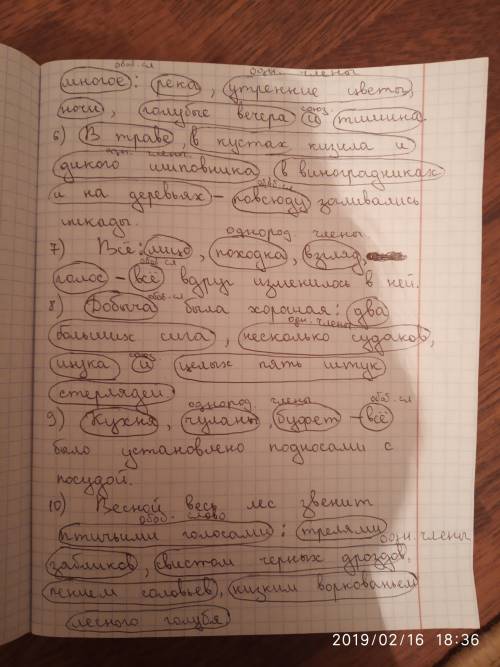 обоб. сл одн. члены
многое: река, утренние цветы,
союз
ночи, голубые вечера и тишина.
6) В траве, в кустах кизила и
одн. члены
дикого шиповника, в виноградниках
обоб. сл
и на деревьях – повсюду заливались
цикады.
однород члены
7) Всё: лицо, походка, взгляд,
обоб. сл
голос – всё вдруг изменилось в ней.
обоб. сл
8) Добыча была хорошая: два
одн. члены
больших сига, несколько судаков,
союз
щука и целых пять штук
стерлядей
однород. члены обоб. сл
9) Кухня, чуланы, буфет – всё
было установлено подносами с
посудой.
10) Весной весь лес звенит
обоб. слово
птичьими голосами: трелями
одн. члены
зябликов, свистом черных дроздов,
пением соловьев, низким воркованьем
лесного голубя
2019/02/16 18:36